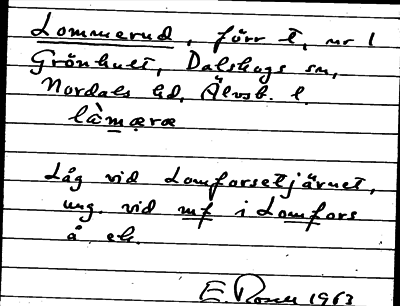 Lommerud, förr t. nr 1
Grönhult, Dalskogs sn,
Nordals hd, Älvsb. l.
låmæræ
Låg vid Lomforsetjärnet,
ung. vid mf i Lomfors
å ek.
E. Rosell 1963